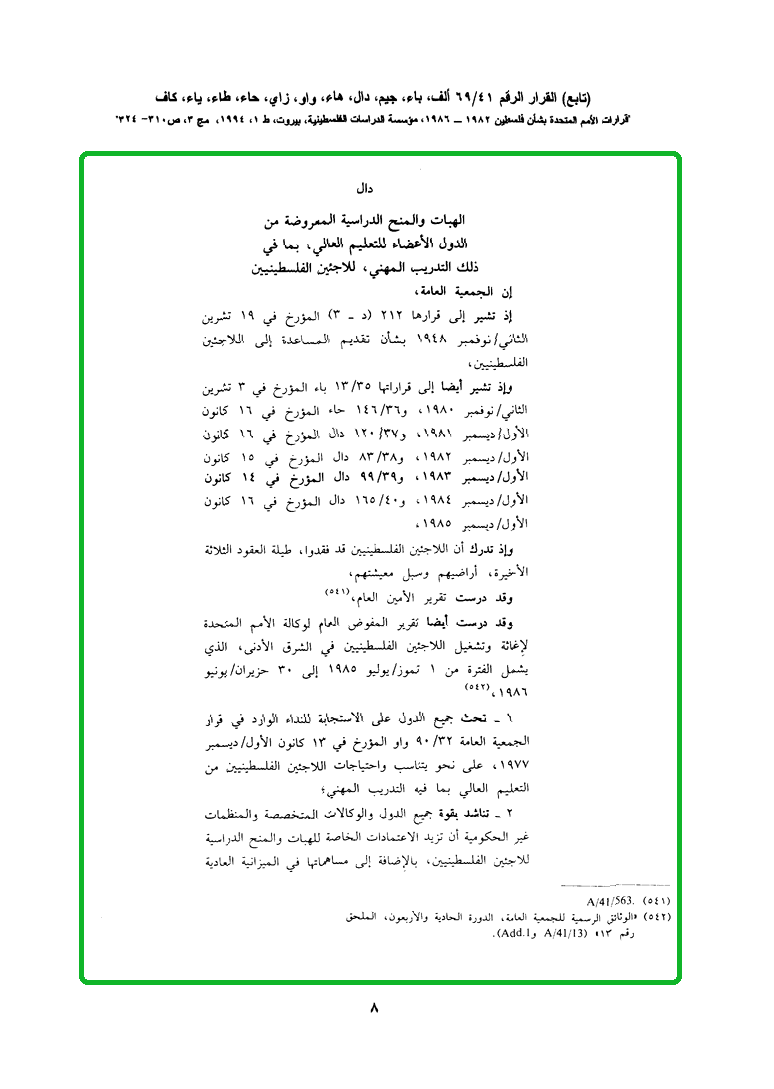 (تابع) القرار الرقم ٦٩/٤١ ألف، باء، جيم، دال، هاء، واو، زاي، حاء، طاء، ياء، كاف
"قرارات الأمم المتحدة بشأن فلسطين ١٩٨٢ – ١٩٨٦، مؤسسة الدراسات الفلسطينية، بيروت، ط ١، ١٩٩٤، مج ٣، ص٣١٠– ٣٢٤"
دال
الهبات والمنح الدراسية المعروضة من
الدول الأعضاء للتعليم العالي، بما في
ذلك التدريب المهني، للاجئين الفلسطينيين
إن الجمعية العامة،
إذ تشير إلى قرارها ٢١٢ (د – ٣) المؤرخ في ١٩ تشرين
الثاني/نوفمبر ١٩٤٨ بشأن تقديم المساعدة إلى اللاجئين
الفلسطينيين،
وإذ تشير أيضا إلى قراراتها ١٣/٣٥ باء المؤرخ في ٣ تشرين
الثاني/نوفمبر ١٩٨٠، و١٤٦/٣٦ حاء المؤرخ في ١٦ كانون
الأول/ديسمبر ١٩٨١، و١٢٠/٣٧ دال المؤرخ في ١٦ كانون
الأول/ديسمبر ١٩٨٢، و٨٣/٣٨ دال المؤرخ في ١٥ كانون
الأول/ديسمبر ١٩٨٣، و٩٩/٣٩ دال المؤرخ في ١٤ كانون
الأول/ديسمبر ١٩٨٤، و١٦٥/٤٠ دال المؤرخ في ١٦ كانون
الأول/ديسمبر ١٩٨٥،
وإذ تدرك أن اللاجئين الفلسطينيين قد فقدوا، طيلة العقود الثلاثة
الأخيرة، أراضيهم وسبل معيشتهم،
وقد درست تقرير الأمين العام،(٥٤١)
وقد درست أيضا تقرير المفوض العام لوكالة الأمم المتحدة
لإغاثة وتشغيل اللاجئين الفلسطينيين في الشرق الأدنى، الذي
يشمل الفترة من ١ تموز/يوليو ١٩٨٥ إلى ٣٠ حزيران/يونيو
١٩٨٦،(٥٤٢)
١ – تحث جميع الدول على الاستجابة للنداء الوارد في قرار
الجمعية العامة ٩٠/٣٢ واو المؤرخ في ١٣ كانون الأول/ديسمبر
١٩٧٧، على نحو يتناسب واحتياجات اللاجئين الفلسطينيين من
التعليم العالي بما فيه التدريب المهني؛
٢ – تناشد بقوة جميع الدول والوكالات المتخصصة والمنظمات
غير الحكومية أن تزيد الاعتمادات الخاصة للهبات والمنح الدراسية
للاجئين الفلسطينيين، بالإضافة إلى مساهماتها في الميزانية العادية
(٥٤١) A/41/563.
(٥٤٢) «الوثائق الرسمية للجمعية العامة، الدورة الحادية والأربعون، الملحق
رقم ١٣» (A/41/13 وAdd.1).
٨